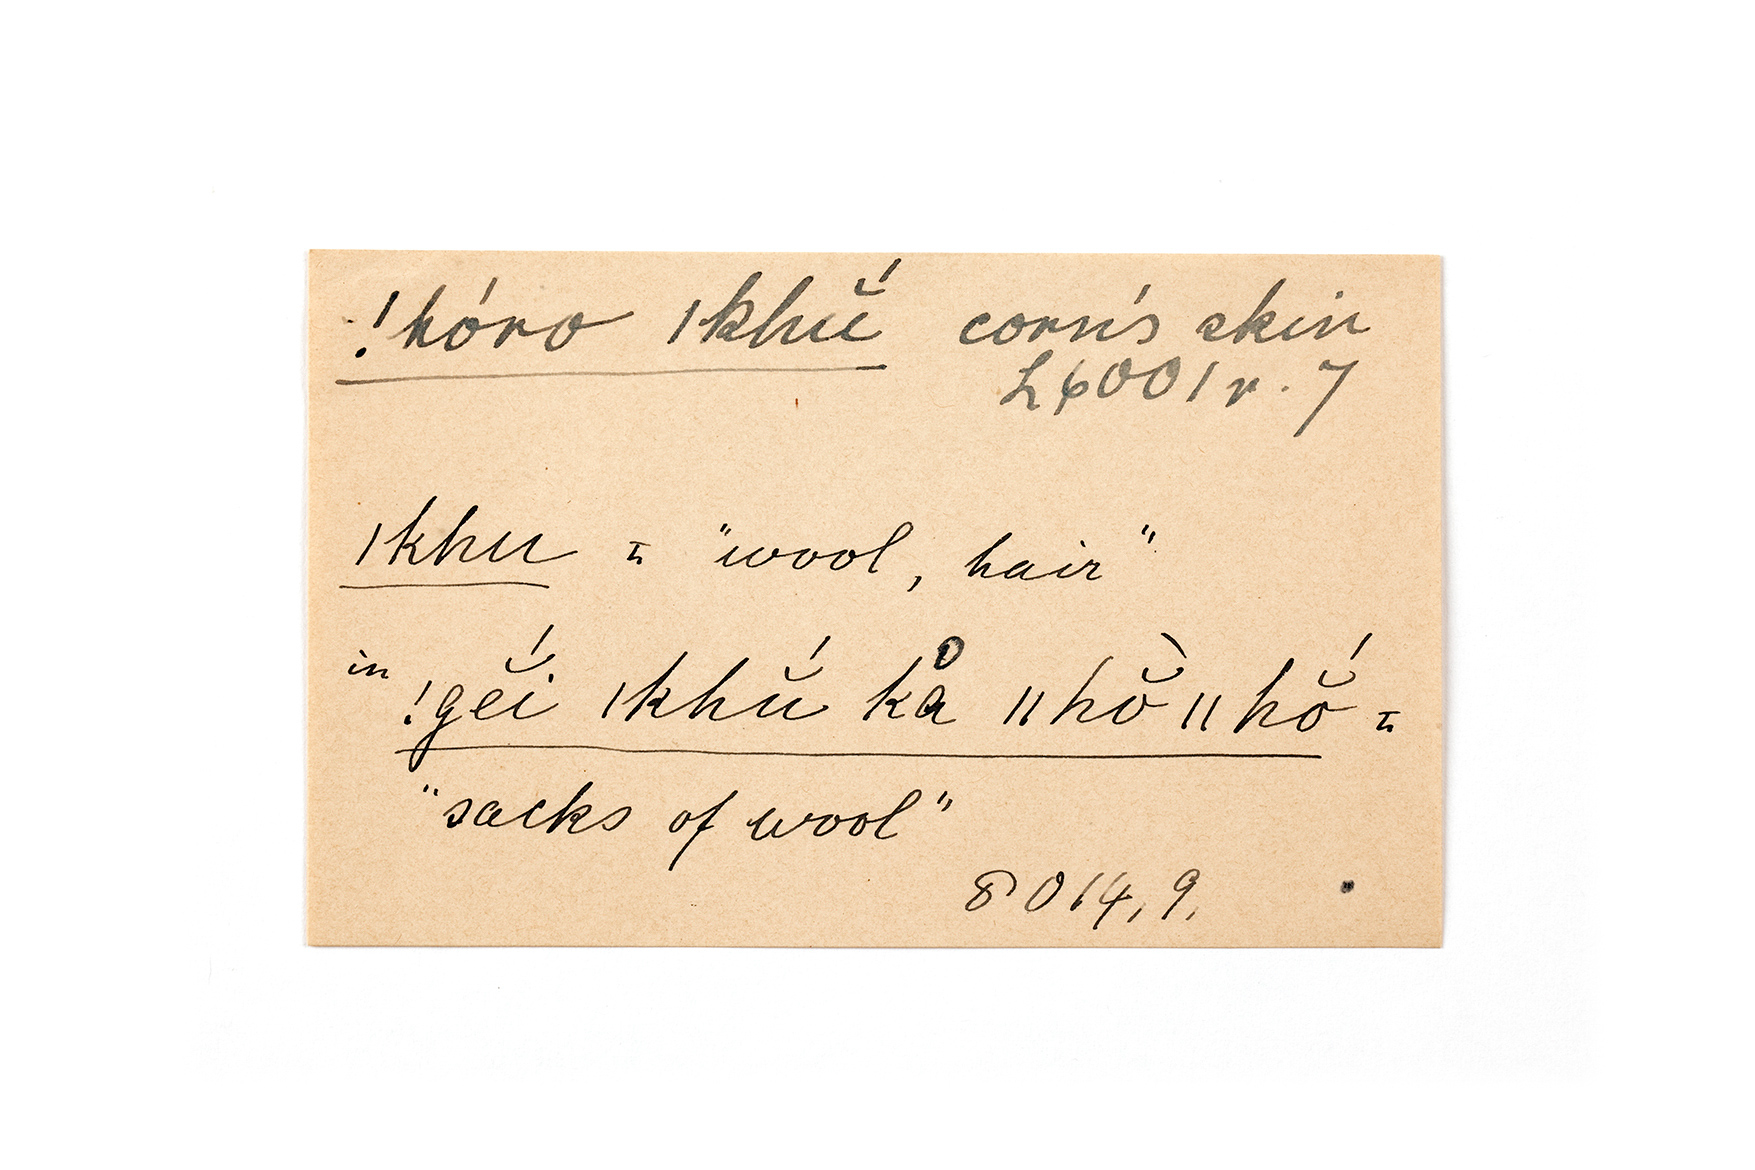 !hóro |khŭ́ corn's skin
L6001 v. 7
|khu = "wool, hair"
in !gĕ́i |khŭ́ kå ||hŏ̀ ||hŏ́ =
"sacks of wool"
8014, 9,